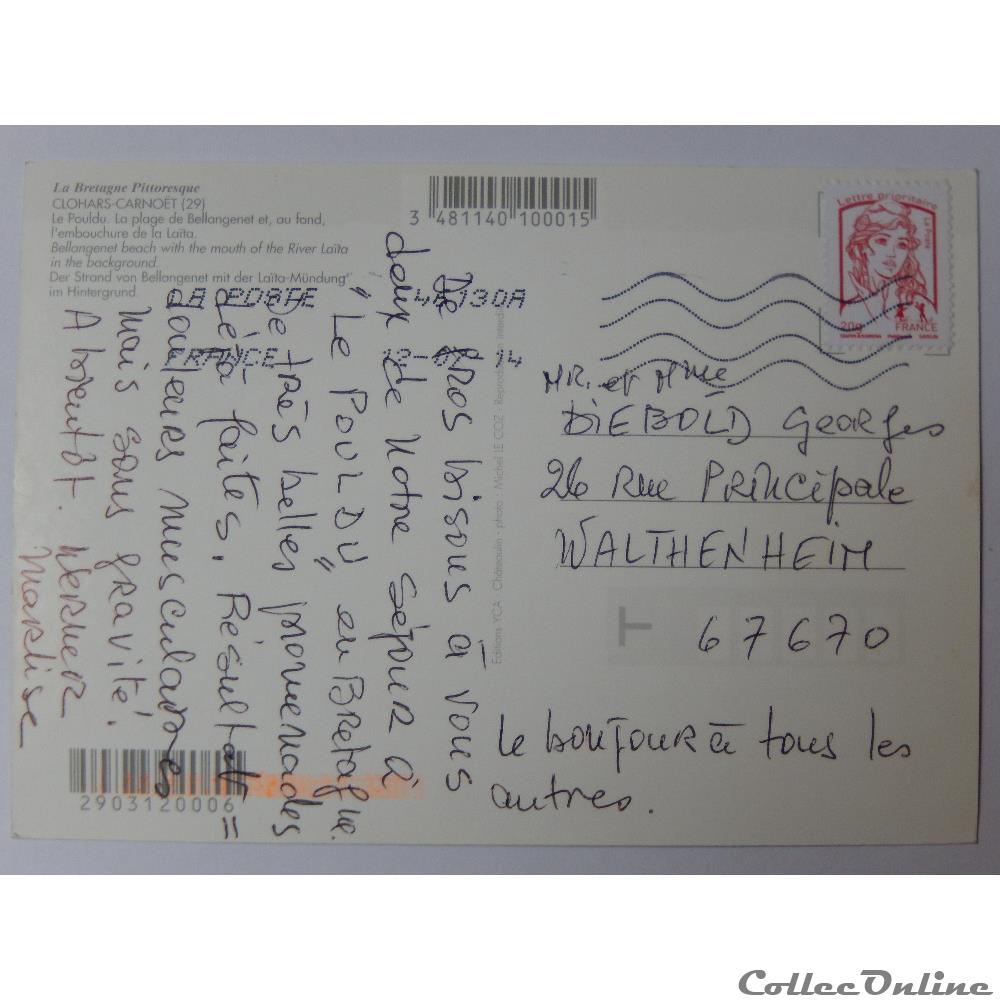 La Bretagne Pittoresque
CLOHARS-CARNOËT (29)
Le Pouldu. La plage de Bellangenet et, au fond,
l'embouchure de la Laïta.
Bellangenet beach with the mouth of the River Laïta
in the background.
Der Strand von Bellangenet mit der Laïta-Mündung
im Hintergrund.
3 481140 100015
Lettre prioritaire
La Poste
20g
FRANCE
LA POSTE 44730A
FRANCE 14
De gros bisous à vous
deux de notre séjour à
"Le POULDU" en Bretagne.
De très belles promenades
déjà faites. Résultat =
douleurs musculaires
mais sans gravité!
A bientôt. Werner
Marlise
Editions YCA Châteaulin - photo : Michel LE COZ Reprod interdi
MR. et Mme
DIEBOLD Georges
26 Rue PRINCIPALE
WALTHENHEIM
T
67670
Le bonjour à tous les
autres.
2903120006
CollecOnline